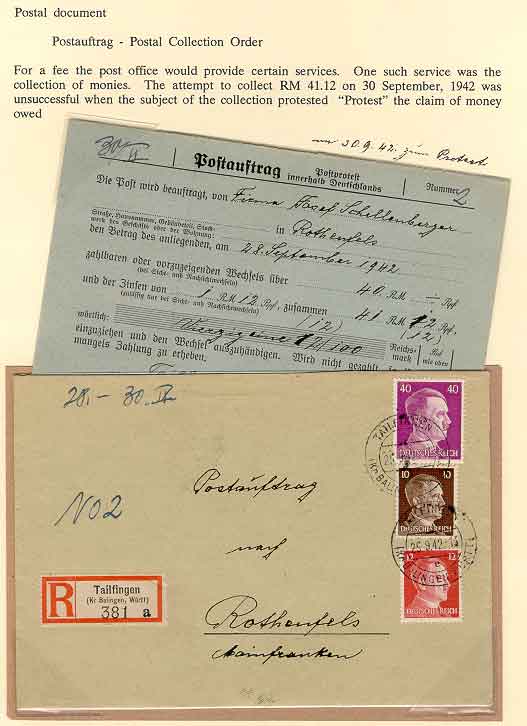 Postal document
Postauftrag - Postal Collection Order
For a fee the post office would provide certain services. One such service was the
collection of monies. The attempt to collect RM 41.12 on 30 September, 1942 was
unsuccessful when the subject of the collection protested "Protest" the claim of money
owed
30.9.42. zum Protest
30/IX
Postauftrag
Postprotest
innerhalb Deutschlands
Nummer 2
Die Post wird beauftragt, von Firma Josef Schellenberger
Straße, Hausnummer, Gebäudeteil, Stock-
werk des Geschäfts oder der Wohnung:
in Rothenfels
den Betrag des anliegenden, am 28. September 1942
zahlbaren oder vorzuzeigenden Wechsels über 40 RM — Rpf
(bei Sicht- und Nachsichtwechseln)
und der Zinsen von 1 RM 12 Rpf, zusammen 41 RM 12 Rpf,
(zulässig nur bei Sicht- und Nachsichtwechseln)
(12) (12)
wörtlich: Vierzigeins 12/100
Reichs-
mark
Rpf
wie oben
einzuziehen und den Wechsel auszuhändigen. Wird nicht gezahlt
mangels Zahlung zu erheben.
28. – 30. IX
NO 2
40 40
DEUTSCHES REICH
TAILFINGEN
10 10
DEUTSCHES REICH
TAILFINGEN
25.9.42
12 12
DEUTSCHES REICH
Postauftrag
nach
Rothenfels
Mainfranken
R
Tailfingen
(Kr Balingen, Württ)
381 a